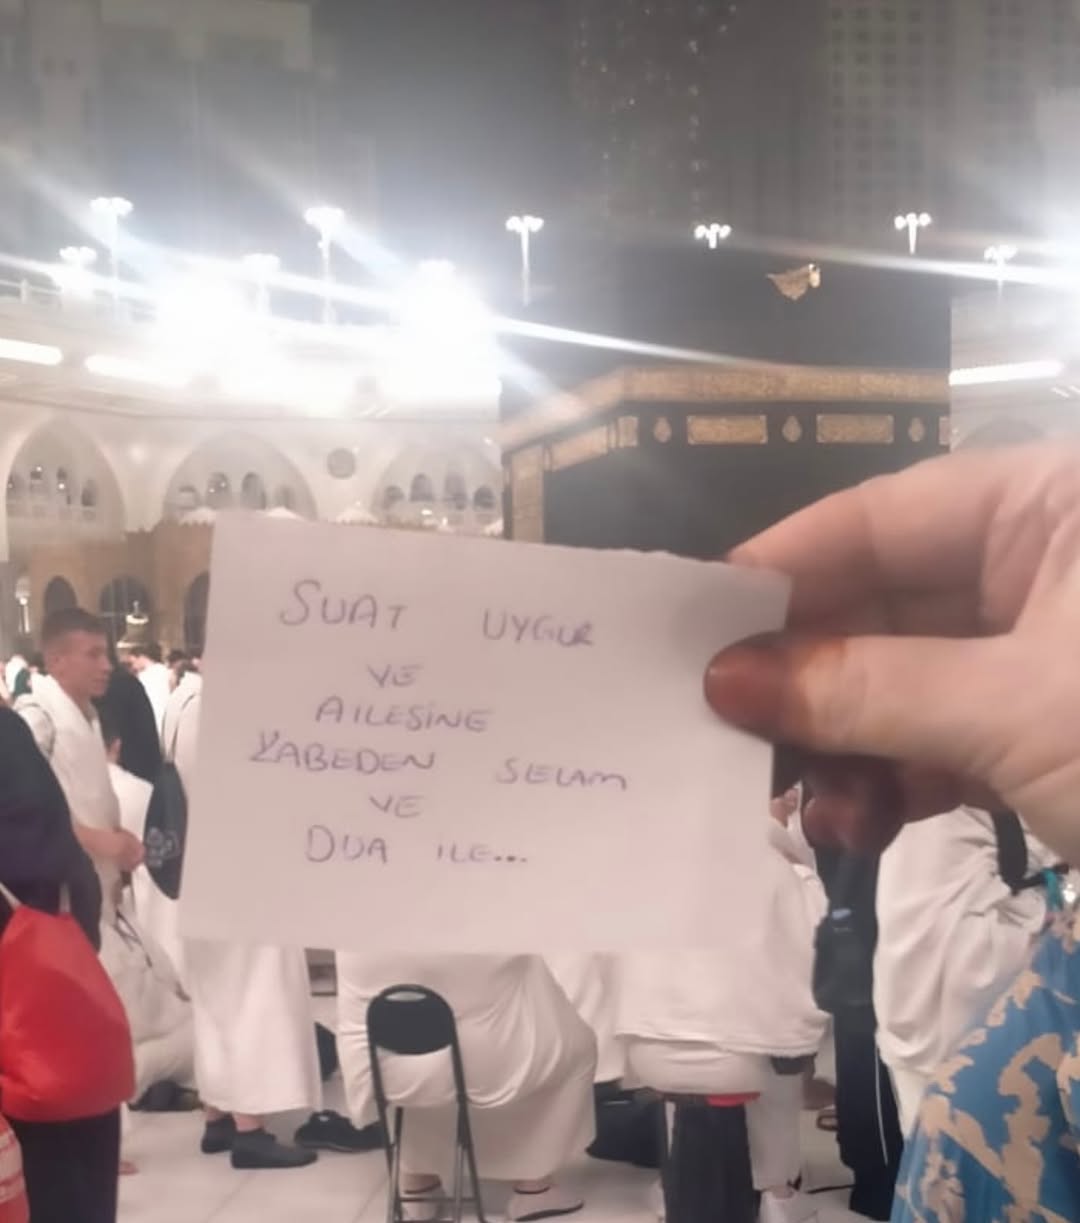 SUAT UYGUR
VE
AILESINE
KABEDEN SELAM
VE
DUA ILE...